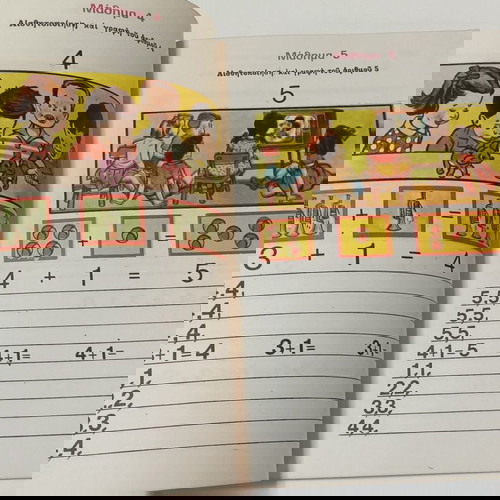 Μάθημα 4
Αἰσθητοποίηση καί γραφή τοῦ ἀριθμοῦ
4
Μάθημα 5
Αἰσθητοποίηση καί γραφή τοῦ ἀριθμοῦ 5
5
3 + 1 = 4
4 + 1 = 5
4,
5,5,
4,
5,5,
4,
5,5,
4+1=
4+1=
+1=4
3+1=
4+1=5
1,1,
1,
2,2,
2,
3,3,
3,
4,4,
4,